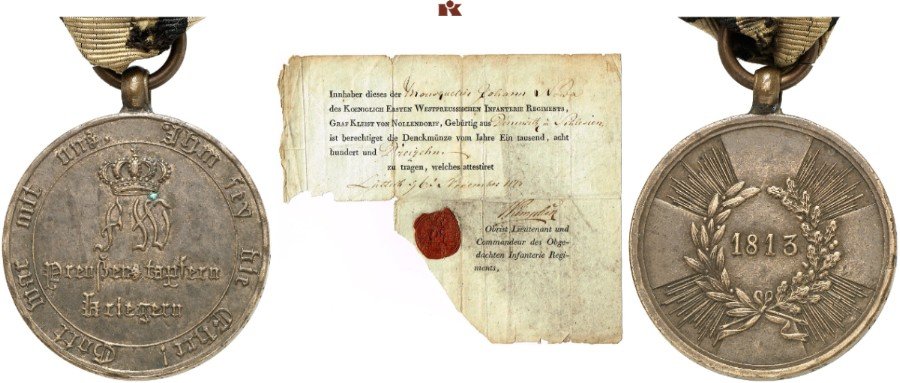 Gott war mit uns, Ihm sey die Ehre!
FW
Preußens tapfern
Kriegern
Innhaber dieses der Mousquetier Johann
des Koeniglich Ersten Westpreussischen Infanterie Regiments,
Graf Kleist von Nollendorff, Gebürtig aus in Schlesien
ist berechtiget die Denckmünze vom Jahre Ein tausend, acht
hundert und Dreizehn
zu tragen, welches attestiret
Lüttich November
Obrist Lieutenant und
Commandeur des Obge-
dachten Infanterie Regi-
ments,
1813